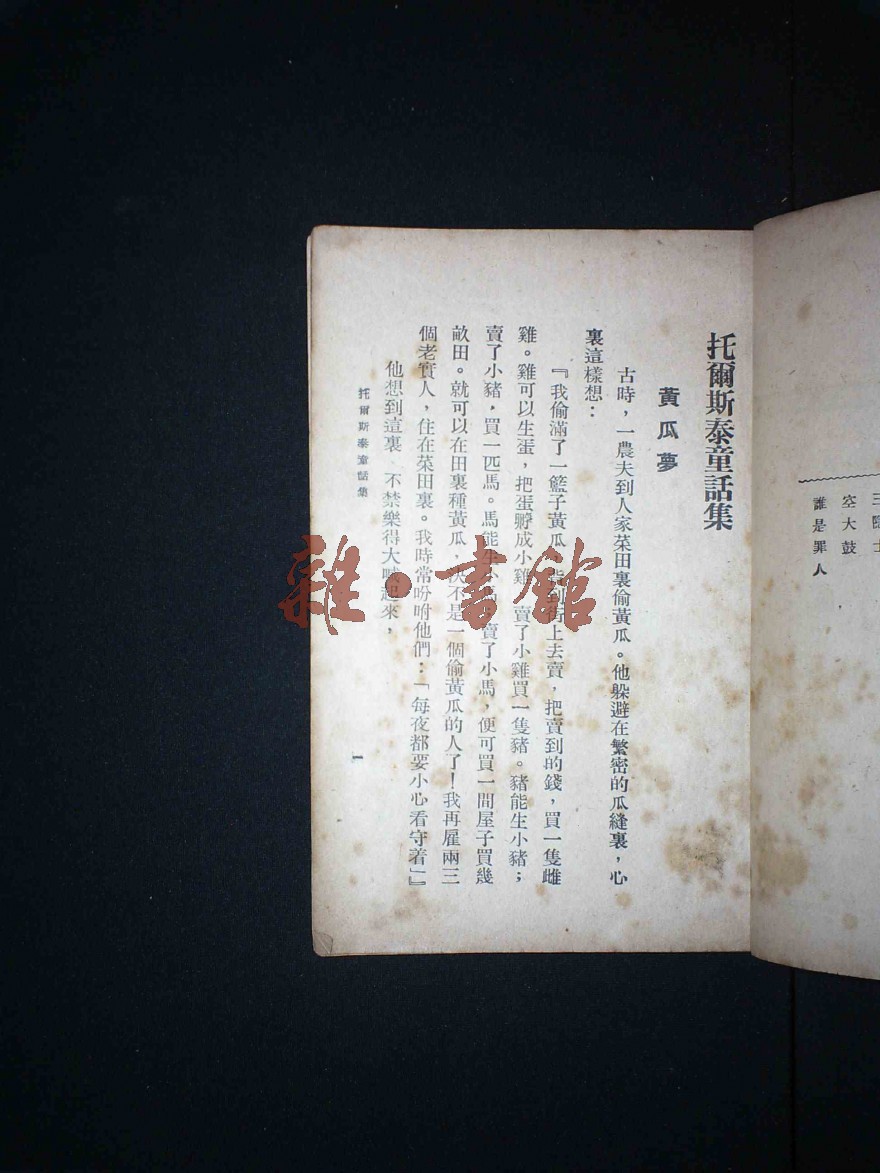 三隱士
空大鼓
誰是罪人
托爾斯泰童話集
黃瓜夢
古時，一農夫到人家菜田裏偷黃瓜。他躲避在繁密的瓜縫裏，心
裏這樣想：
『我偷滿了一籃子黃瓜，到街上去賣，把賣到的錢，買一隻雌
雞。雞可以生蛋，把蛋孵成小雞，賣了小雞買一隻豬。豬能生小豬；
賣了小豬，買一匹馬。馬能生小馬，賣了小馬，便可買一間屋子買幾
畝田。就可以在田裏種黃瓜，決不是一個偷黃瓜的人了！我再雇兩三
個老實人，住在菜田裏。我時常吩咐他們：「每夜都要小心看守着」』
他想到這裏，不禁樂得大喊起來，
托爾斯泰童話集
一
雜·書館